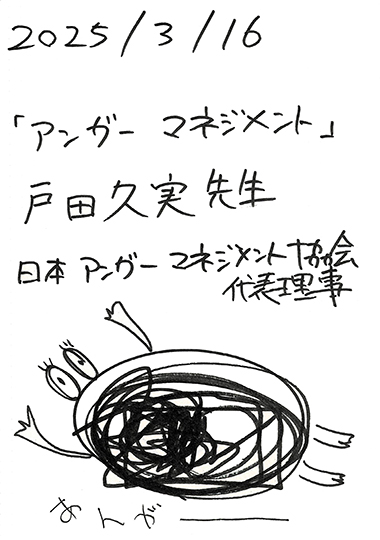 2025/3/16
「アンガー マネジメント」
戸田久実 先生
日本 アンガー マネジメント協会
代表理事
あんがー